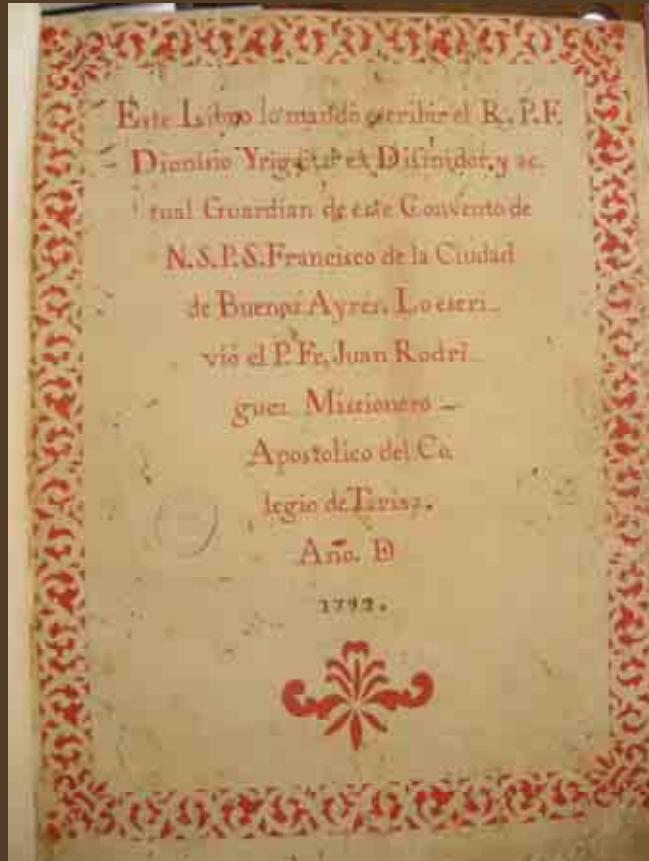 Este Libro lo mando escribir el R. P. F.
Dionisio Yrigoyen ex Difinidor, y ac
tual Guardian de este Convento de
N. S. P. S. Francisco de la Ciudad
de Buenos Ayres. Lo escri_
vió el P. Fr. Juan Rodri_
guez Missionero _
Apostolico del Co
legio de Tarija.
Año. D
1792.